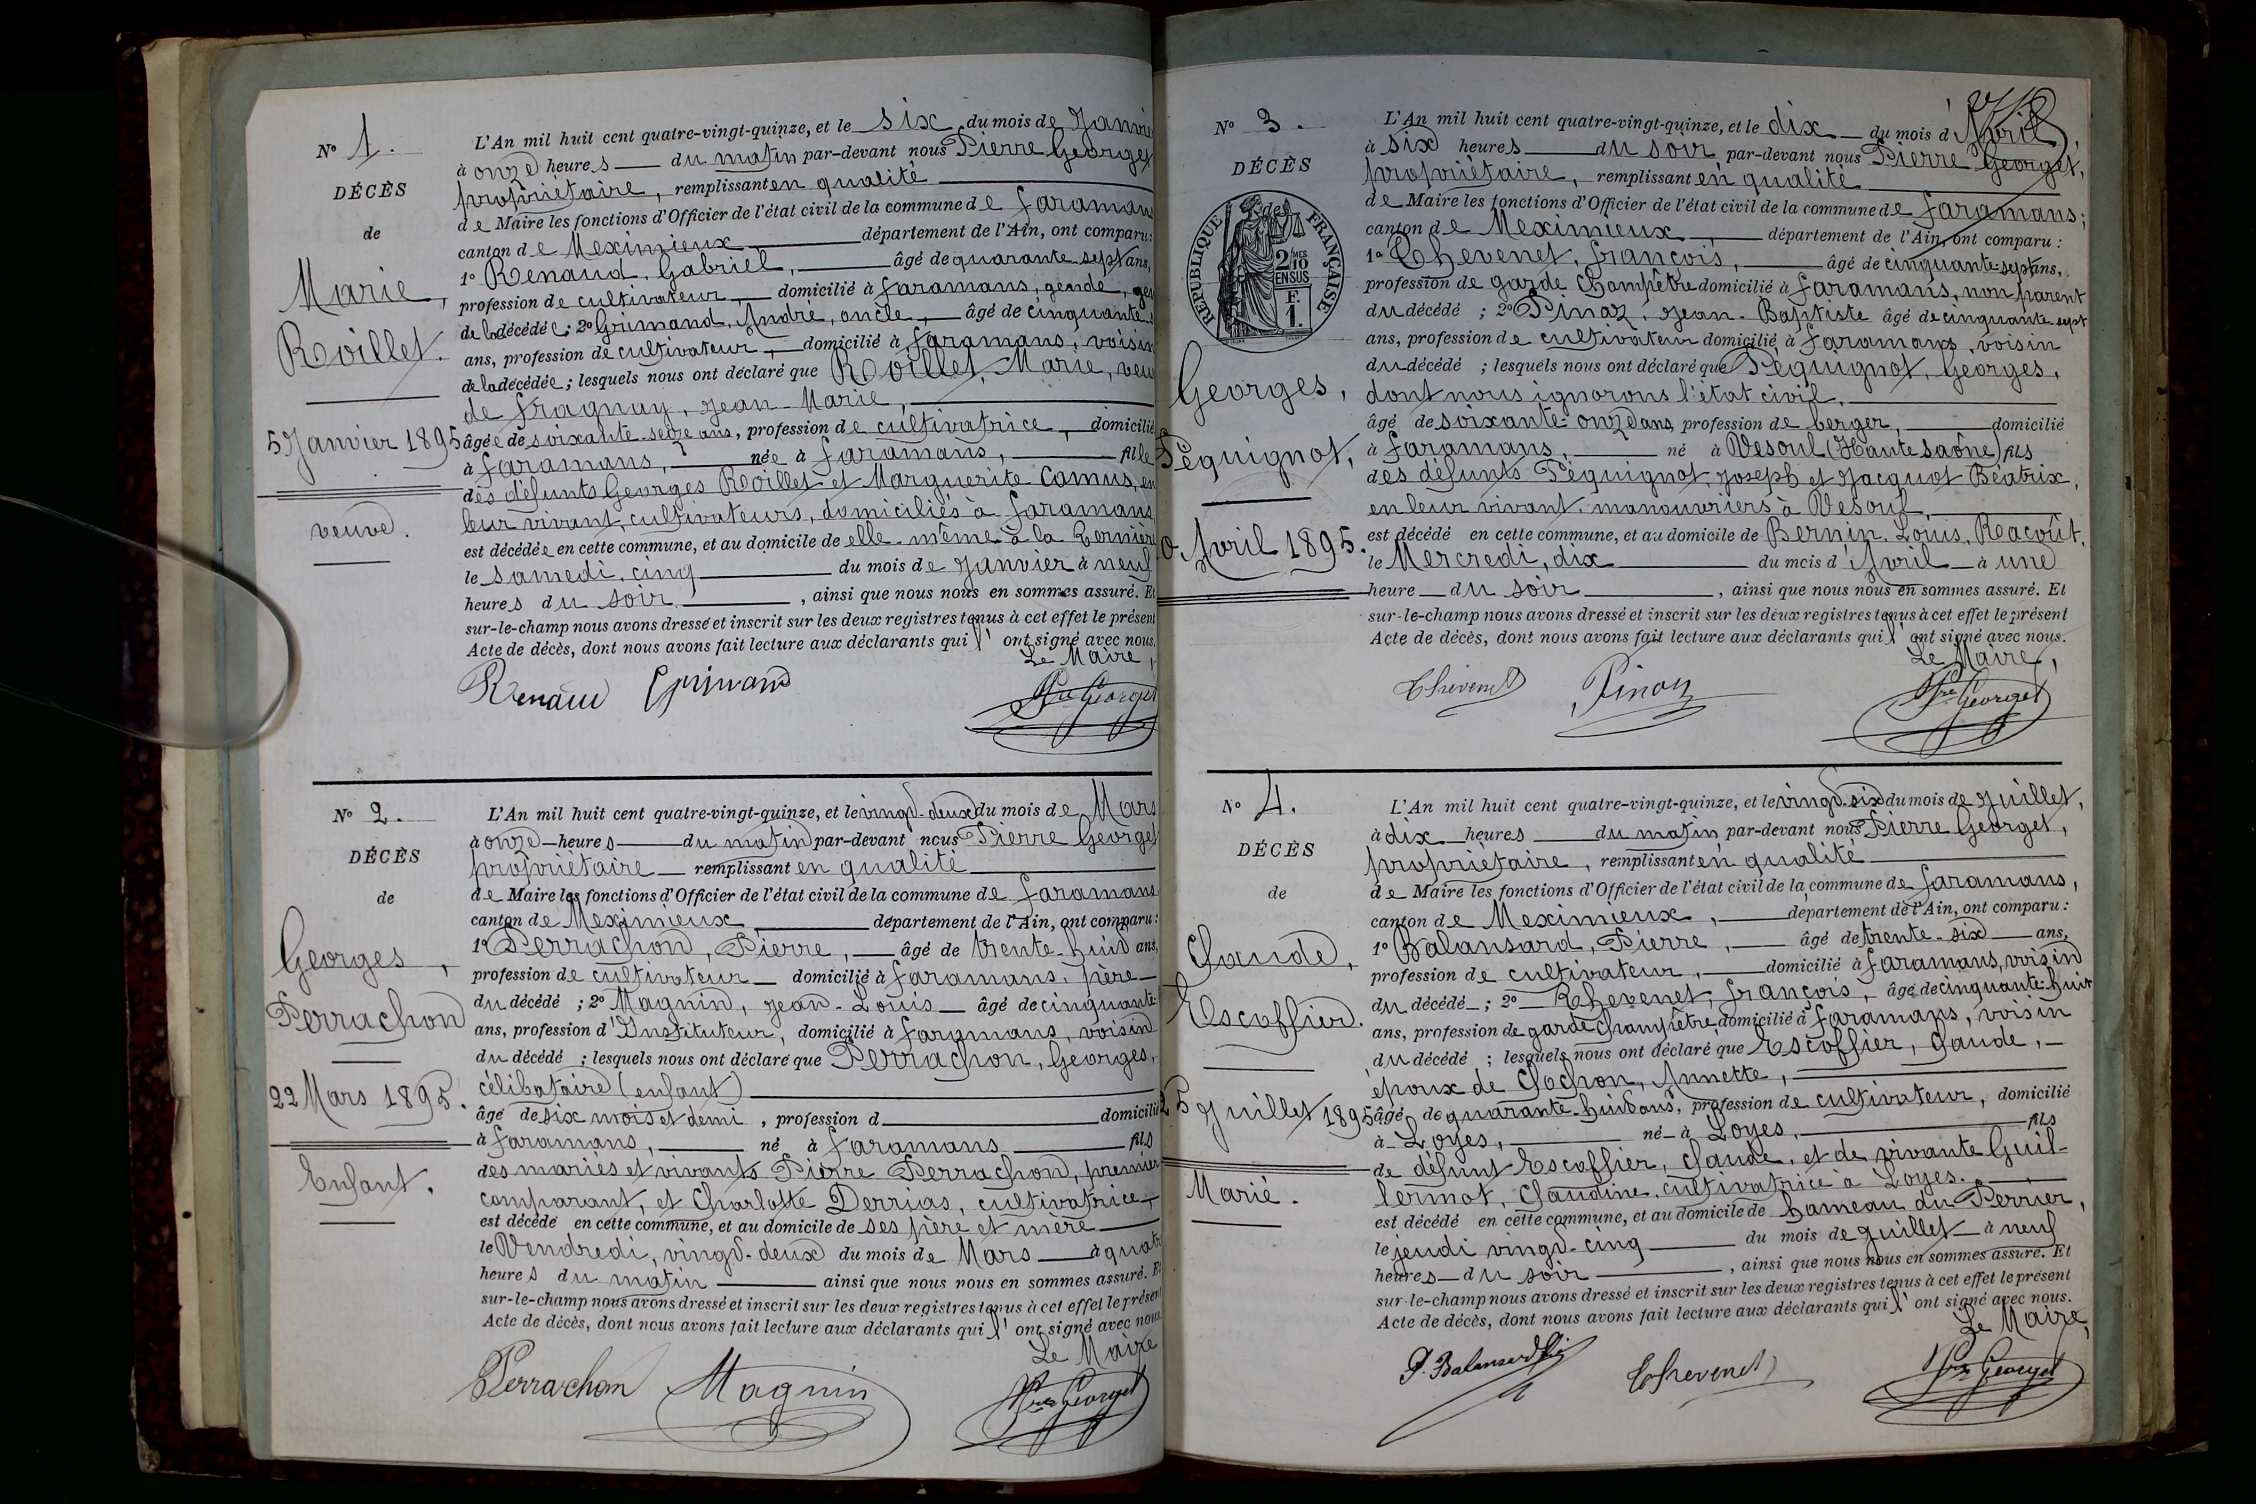 N° 1.
DÉCÈS
de
Marie,
Roillet.
5 Janvier 1895
veuve.
L'An mil huit cent quatre-vingt-quinze, et le six du mois de Janvie
à onze heures du matin par-devant nous Pierre Georget
propriétaire, remplissant en qualité
de Maire les fonctions d'Officier de l'état civil de la commune de faramans
canton de Meximieux département de l'Ain, ont comparu:
1° Renaud, Gabriel, âgé de quarante-sept ans,
profession de cultivateur, domicilié à faramans, gendre,
de la décédée; 2° Grimand, Andre, oncle, âgé de cinquante
ans, profession de cultivateur, domicilié à faramans, voisin
de la décédée; lesquels nous ont déclaré que Roillet, Marie, veu
de fragnay, Jean-Marie,
âgée de soixante-seize ans, profession de cultivatrice, domicilié
à faramans, née à faramans, fille
des défunts Georges Roillet et Marguerite Camus, en
leur vivant, cultivateurs, domiciliés à faramans
est décédée en cette commune, et au domicile de elle-même à la
le samedi, cinq du mois de Janvier à neuf
heures du soir, ainsi que nous nous en sommes assuré. Et
sur-le-champ nous avons dressé et inscrit sur les deux registres tenus à cet effet le présent
Acte de décès, dont nous avons fait lecture aux déclarants qui l'ont signé avec nous.
Le Maire,
Renaud Grimand Pre Georget
N° 2.
DÉCÈS
de
Georges,
Perrachon
22 Mars 1895.
Enfant.
L'An mil huit cent quatre-vingt-quinze, et le vingt-deux du mois de Mars
à onze heures du matin par-devant nous Pierre Georget
propriétaire remplissant en qualité
de Maire les fonctions d'Officier de l'état civil de la commune de faramans
canton de Meximieux département de l'Ain, ont comparu:
1° Perrachon, Pierre, âgé de trente-huit ans,
profession de cultivateur domicilié à faramans, père
du décédé; 2° Magnin, Jean-Louis âgé de cinquante
ans, profession d'Instituteur, domicilié à faramans, voisin
du décédé; lesquels nous ont déclaré que Perrachon, Georges,
célibataire (enfant)
âgé de six mois et demi, profession d domicilié
à faramans, né à faramans fils
des mariés et vivants Pierre Perrachon, premier
comparant, et Charlotte Derrias, cultivatrice
est décédé en cette commune, et au domicile de ses père et mère
le Vendredi, vingt-deux du mois de Mars à quatre
heures du matin ainsi que nous nous en sommes assuré. Et
sur-le-champ nous avons dressé et inscrit sur les deux registres tenus à cet effet le présent
Acte de décès, dont nous avons fait lecture aux déclarants qui l'ont signé avec nous.
Le Maire
Perrachon Magnin Pre Georget
N° 3.
DÉCÈS
de
RÉPUBLIQUE FRANÇAISE
2/10 MES
EN SUS
F.
1.
Georges,
Péquignot,
0 Avril 1895.
L'An mil huit cent quatre-vingt-quinze, et le dix du mois d'Avril
à six heures du soir par-devant nous Pierre Georget,
propriétaire, remplissant en qualité
de Maire les fonctions d'Officier de l'état civil de la commune de faramans;
canton de Meximieux, département de l'Ain, ont comparu:
1° Thevenet, françois, âgé de cinquante-sept ans,
profession de garde Champêtre domicilié à faramans, non parent
du décédé; 2° Pinaz, Jean-Baptiste âgé de cinquante-sept
ans, profession de cultivateur domicilié à faramans, voisin
du décédé; lesquels nous ont déclaré que Péquignot, Georges,
dont nous ignorons l'état civil,
âgé de soixante-onze ans, profession de berger, domicilié
à faramans, né à Vesoul (Haute Saône) fils
des défunts Péquignot, Joseph et Jacquot Béatrix,
en leur vivant, manouvriers à Vesoul,
est décédé en cette commune, et au domicile de Bernin, Louis, Reacoût,
le Mercredi, dix du mois d'Avril à une
heure du soir, ainsi que nous nous en sommes assuré. Et
sur-le-champ nous avons dressé et inscrit sur les deux registres tenus à cet effet le présent
Acte de décès, dont nous avons fait lecture aux déclarants qui l'ont signé avec nous.
Le Maire,
Thevenet Pinaz Pre Georget
N° 4.
DÉCÈS
de
Claude,
Escoffier.
25 Juillet 1895
Marié.
L'An mil huit cent quatre-vingt-quinze, et le vingt-six du mois de Juillet,
à dix heures du matin par-devant nous Pierre Georget,
propriétaire, remplissant en qualité
de Maire les fonctions d'Officier de l'état civil de la commune de faramans,
canton de Meximieux, département de l'Ain, ont comparu:
1° Balansard, Pierre, âgé de trente-six ans,
profession de cultivateur, domicilié à faramans, voisin
du décédé; 2° Thevenet, françois, âgé de cinquante-huit
ans, profession de garde Champêtre domicilié à faramans, voisin
du décédé; lesquels nous ont déclaré que Escoffier, Claude,
époux de Cochon, Annette,
âgé de quarante-huit ans, profession de cultivateur, domicilié
à Loyes, né à Loyes, fils
de défunt Escoffier, Claude, et de vivante Guil-
lermot, Claudine, cultivatrice à Loyes.
est décédé en cette commune, et au domicile de hameau du Perrier,
le jeudi vingt-cinq du mois de juillet à neuf
heures du soir, ainsi que nous nous en sommes assuré. Et
sur-le-champ nous avons dressé et inscrit sur les deux registres tenus à cet effet le présent
Acte de décès, dont nous avons fait lecture aux déclarants qui l'ont signé avec nous.
Le Maire,
P. Balansard Thevenet Pre Georget